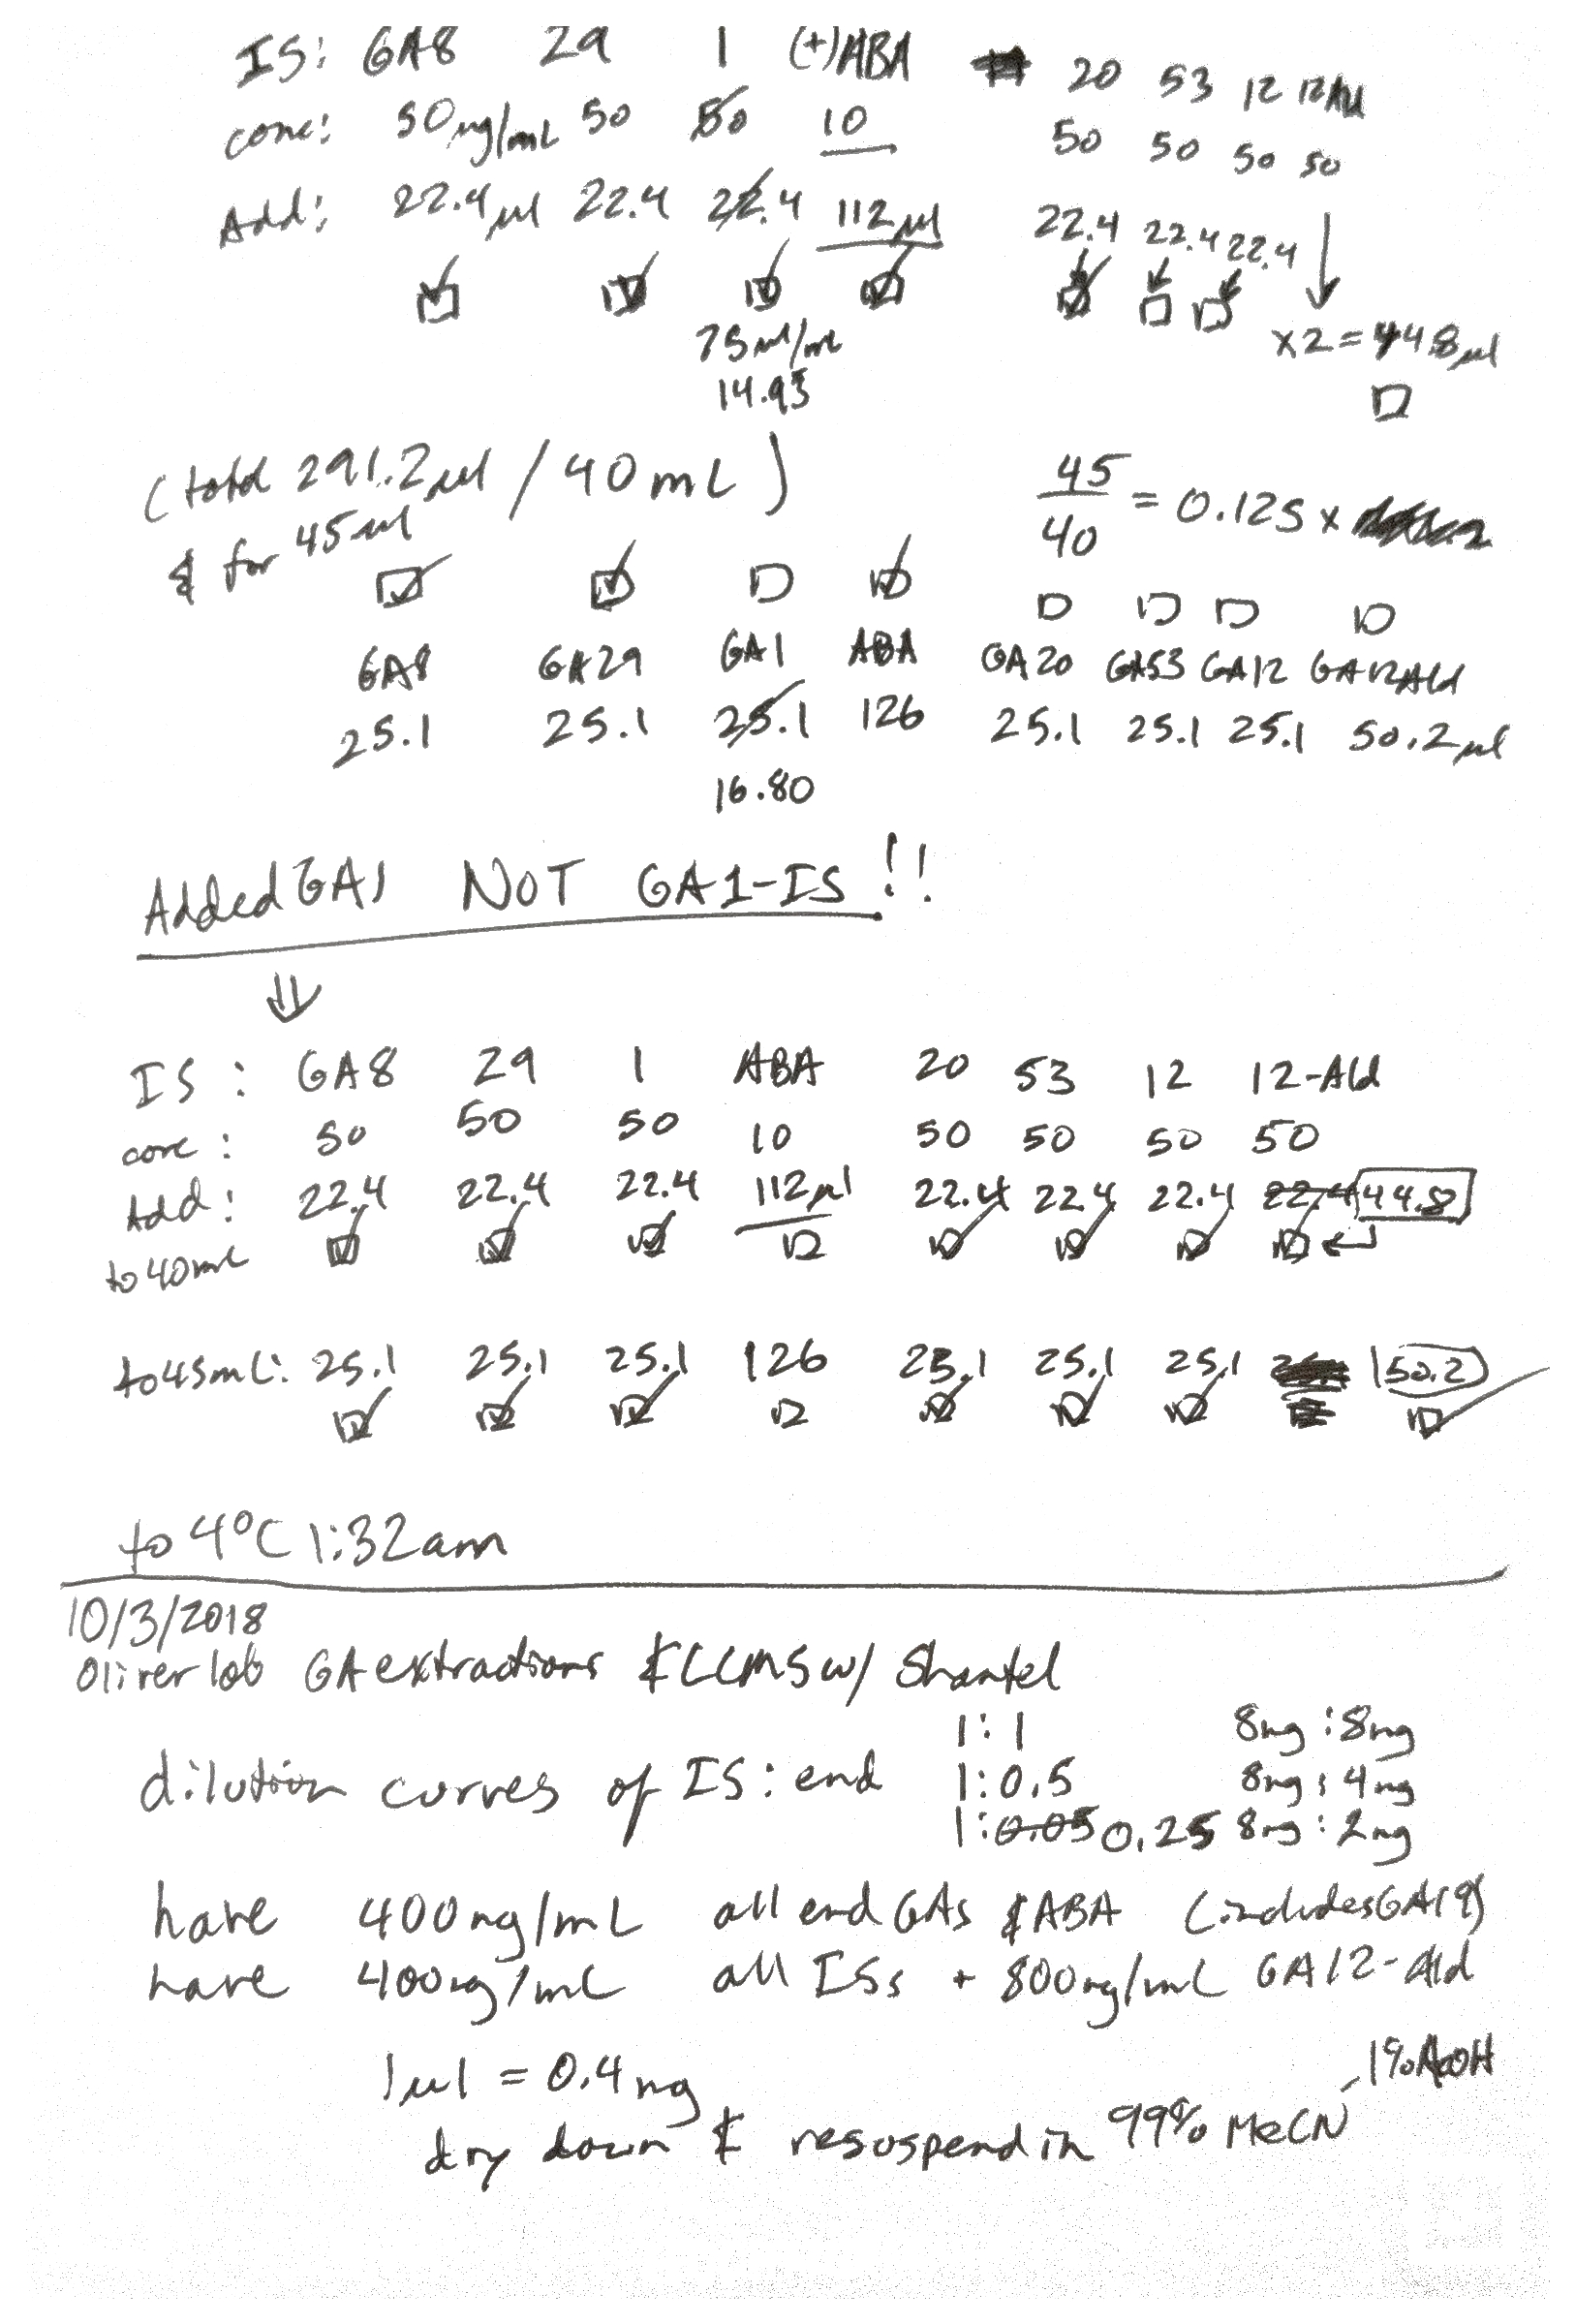 IS: GA8 29 1 (+)ABA 20 53 12 12Ald
conc: 50ng/mL 50 50 10 50 50 50 50
Add: 22.4µl 22.4 22.4 112µl 22.4 22.4 22.4
75ul/mL x2=44.8µl
14.93
(total 291.2µl / 40mL) 45/40 = 0.125 x
& for 45ml
GA8 GA29 GA1 ABA GA20 GA53 GA12 GA12Ald
25.1 25.1 25.1 126 25.1 25.1 25.1 50.2µl
16.80
Added GA1 NOT GA1-IS!!
⇓
IS: GA8 29 1 ABA 20 53 12 12-Ald
conc: 50 50 50 10 50 50 50 50
Add: 22.4 22.4 22.4 112µl 22.4 22.4 22.4 22.4 44.8
to 40mL
to 45mL: 25.1 25.1 25.1 126 25.1 25.1 25.1 50.2
to 4°C 1:32am
10/3/2018
Oliver lab GA extractions & LCMS w/ Shantel
1:1 8ng:8ng
dilution curves of IS:end 1:0.5 8ng:4ng
1:0.05 0.25 8ng:2ng
have 400ng/mL all end GAs & ABA (includes GA19)
have 400ng/mL all ISs + 800ng/mL GA12-Ald
1µl = 0.4ng
dry down & resuspend in 99% MeCN 1% AcOH